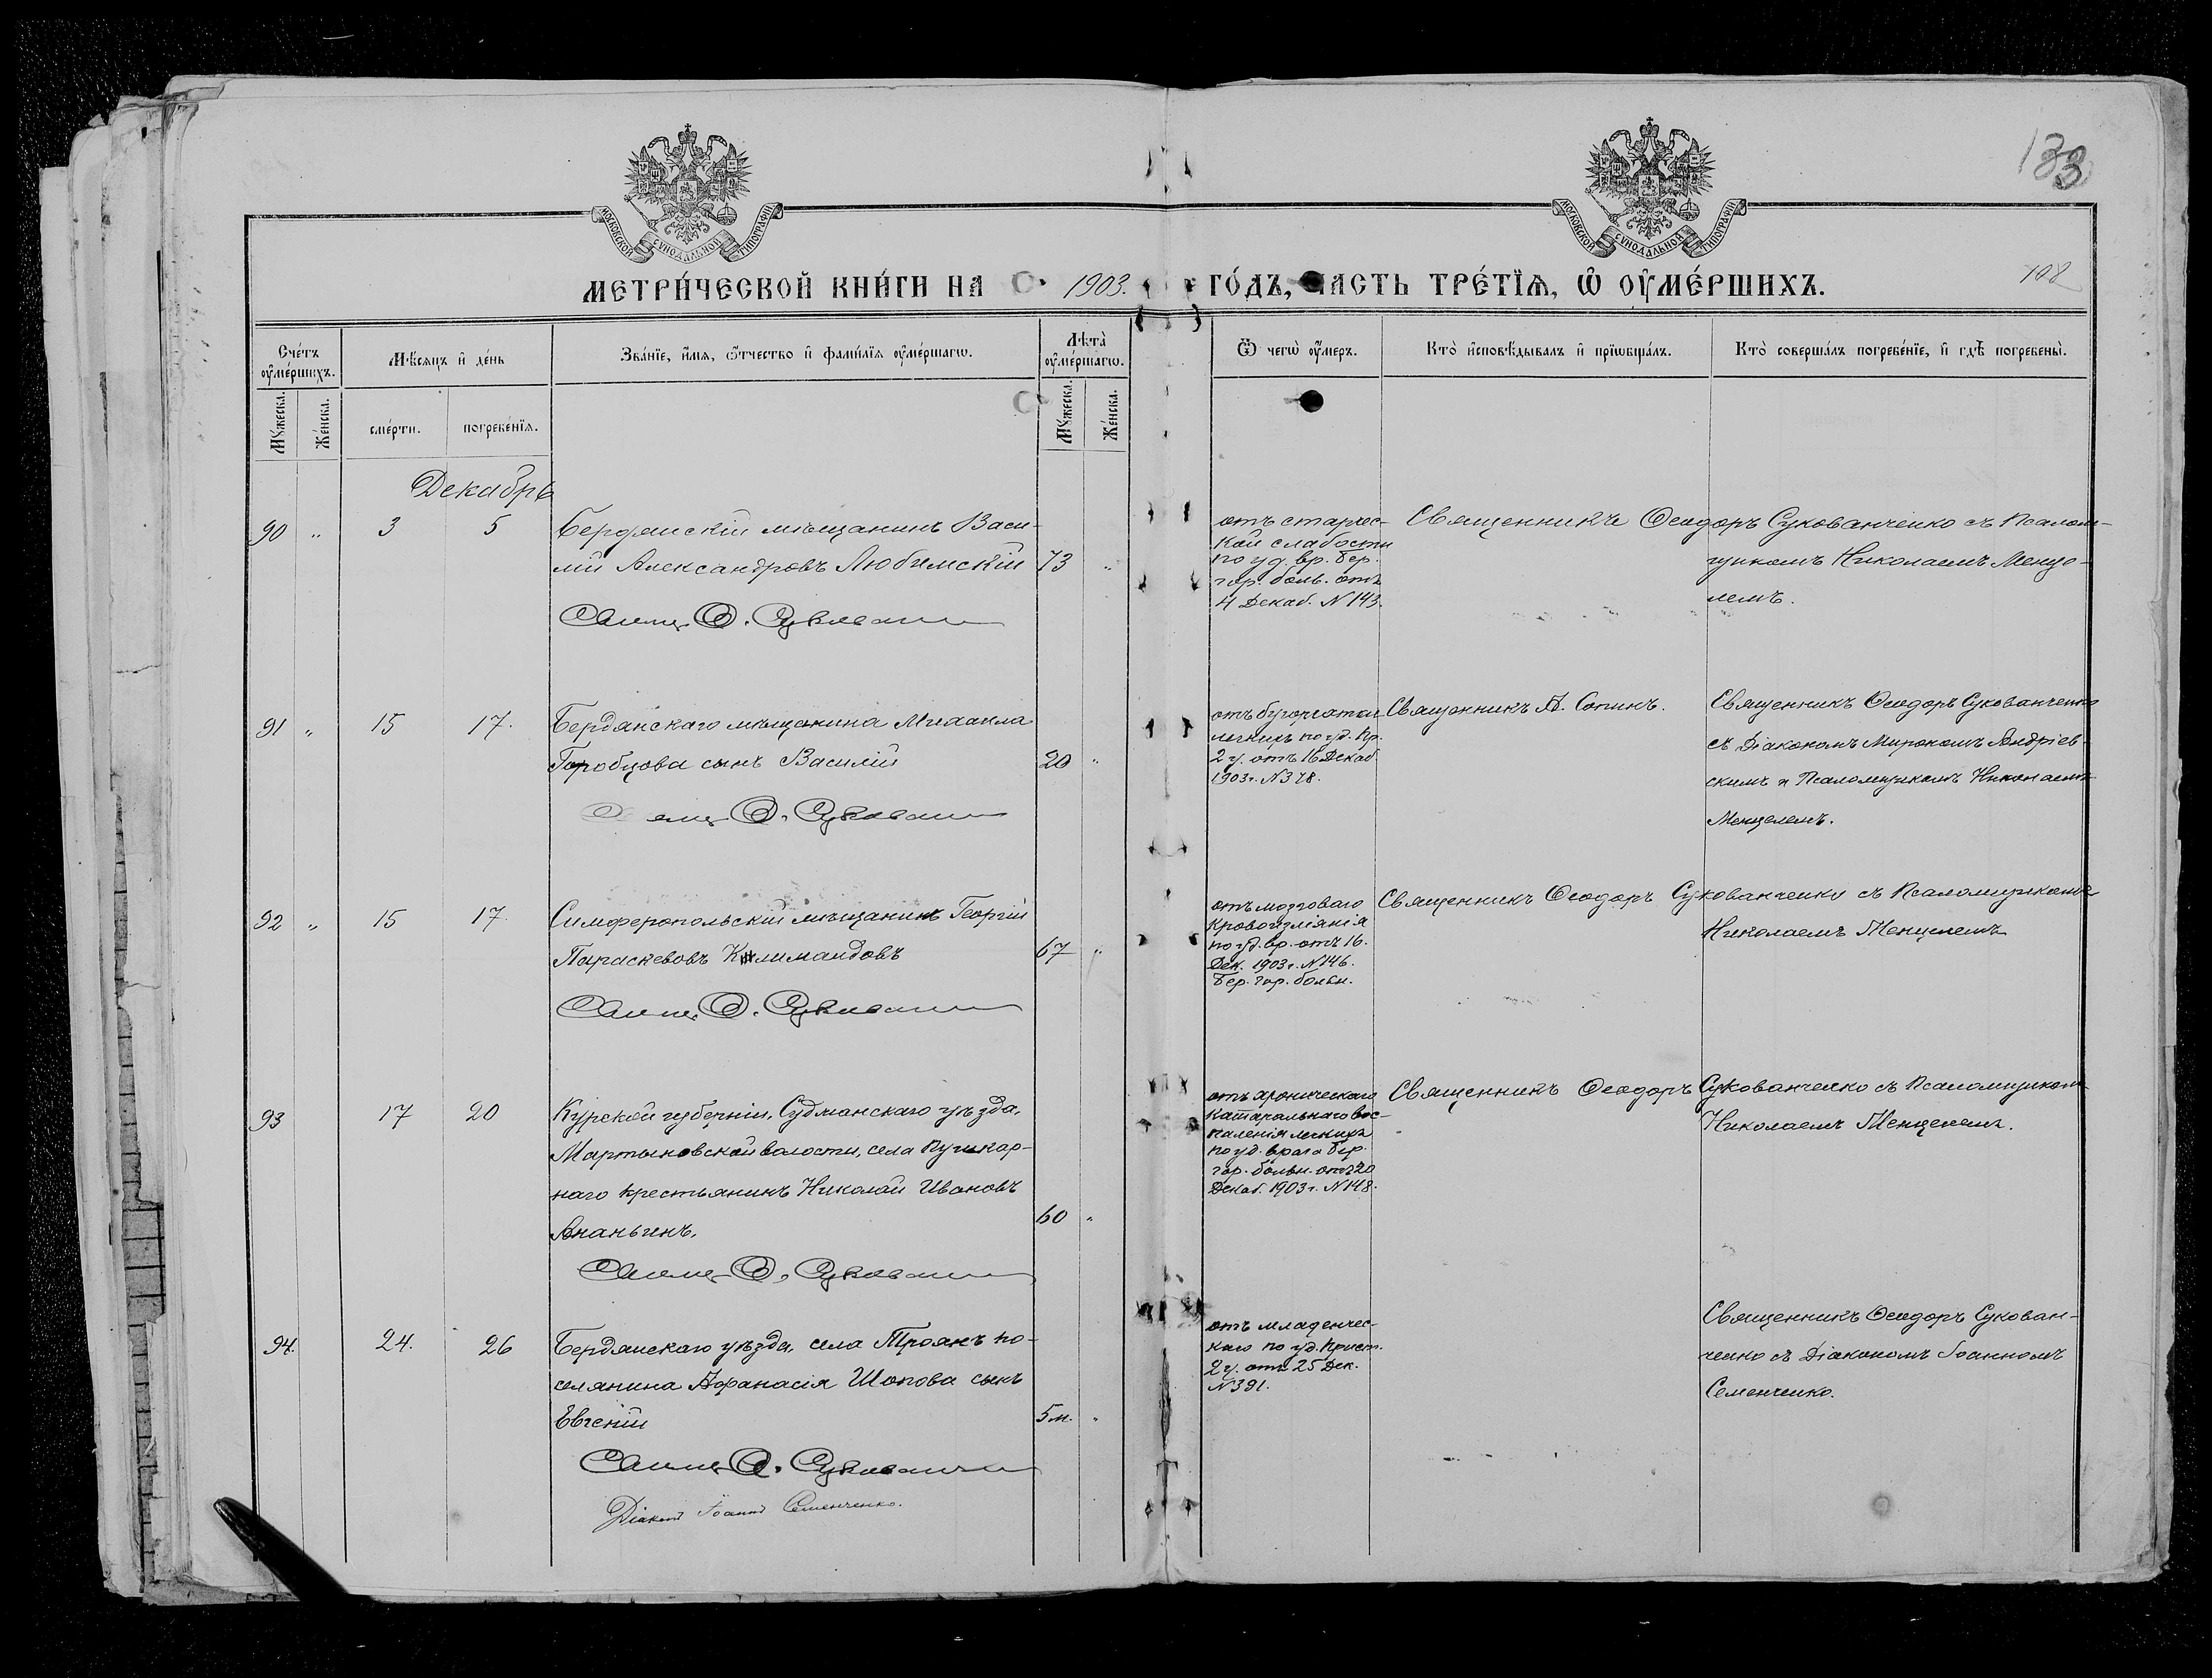 133
МОСКОВСКОЙ СѴНОДАЛЬНОЙ ТИПОГРАФІИ
МОСКОВСКОЙ СѴНОДАЛЬНОЙ ТИПОГРАФІИ
МЕТРИ́ЧЕСКОЙ КНИ́ГИ НА 1903. ГО́ДЪ, ЧАСТЬ ТРЕ́ТІѦ, Ѡ ОУ҆МЕ́РШИХЪ.
108
Сче́тъ оу҆ме́ршихъ.
Мѣ́сѧцъ и҆ де́нь
Зва́нїе, и҆́мѧ, ѻ҆́тчество и҆ фами́лїѧ оу҆ме́ршагѡ.
Лѣта̀ оу҆ме́ршагѡ.
Ѿ чегѡ̀ оу҆́меръ.
Кто̀ и҆сповѣ́дывалъ и҆ прїѡбща́лъ.
Кто̀ соверша́лъ погребе́нїе, и҆ гдѣ̀ погребены̀.
Мꙋ́жеска.
Же́нска.
сме́рти.
погребе́нїѧ.
Мꙋ́жеска.
Же́нска.
Декабрь
90 " 3 5 Бердянскій мѣщанинъ Васи-
лій Александровъ Любимскій 73 "
Свящ. Ѳ. Сукован
отъ старчес-
кой слабости
по уд. вр. Бер.
гор. боль. отъ
4 Декаб. N 143.
Священникъ Ѳеодоръ Сукованченко съ Псалом-
щикомъ Николаемъ Менце-
лемъ.
91 " 15 17. Бердянскаго мѣщанина Михаила
Горобцова сынъ Василій 20 "
Ѳ. Сукован
отъ бугорчатки
легкихъ по уд. Пр.
2 у. отъ 16 Декаб.
1903 г. N 378.
Священникъ А. Сопинъ.
Священникъ Ѳеодоръ Сукованченко
съ Діакономъ Мирономъ Андріев-
скимъ и Псаломщикомъ Николаемъ
Менцелемъ.
92 " 15 17. Симферопольскій мѣщанинъ Георгій
Параскевовъ Климандовъ 67 "
Свящ. Ѳ. Сукован
отъ мозговаго
кровоизліянія
по уд. вр. отъ 16.
Дек. 1903 г. N 146.
Бер. Гор. больн.
Священникъ Ѳеодоръ Сукованченко съ Псаломщикомъ
Николаемъ Менцелемъ
93 17 20 Курской губерніи, Суджанскаго уѣзда,
Мартыновской волости, села Пушкар-
наго крестьянинъ Николай Ивановъ
Ананьинъ. 60 "
Свящ. Ѳ. Сукован
отъ хроническаго
катарральнаго вос-
паленія легкихъ
по уд. врача Бер.
гор. больн. отъ 20
Декаб. 1903 г. N 148.
Священникъ Ѳеодоръ Сукованченко съ Псаломщикомъ
Николаемъ Менцелемъ.
94. 24. 26 Бердянскаго уѣзда, села Троянъ по-
селянина Афанасія Шопова сынъ
Евгеній 5 м. "
Свящ. Ѳ. Сукованч
Діаконъ Іоаннъ Семенченко.
отъ младенчес-
каго по уд. Прист.
2 у. отъ 25 Дек.
N 391.
Священникъ Ѳеодоръ Сукован-
ченко съ Діакономъ Іоанномъ
Семенченко.